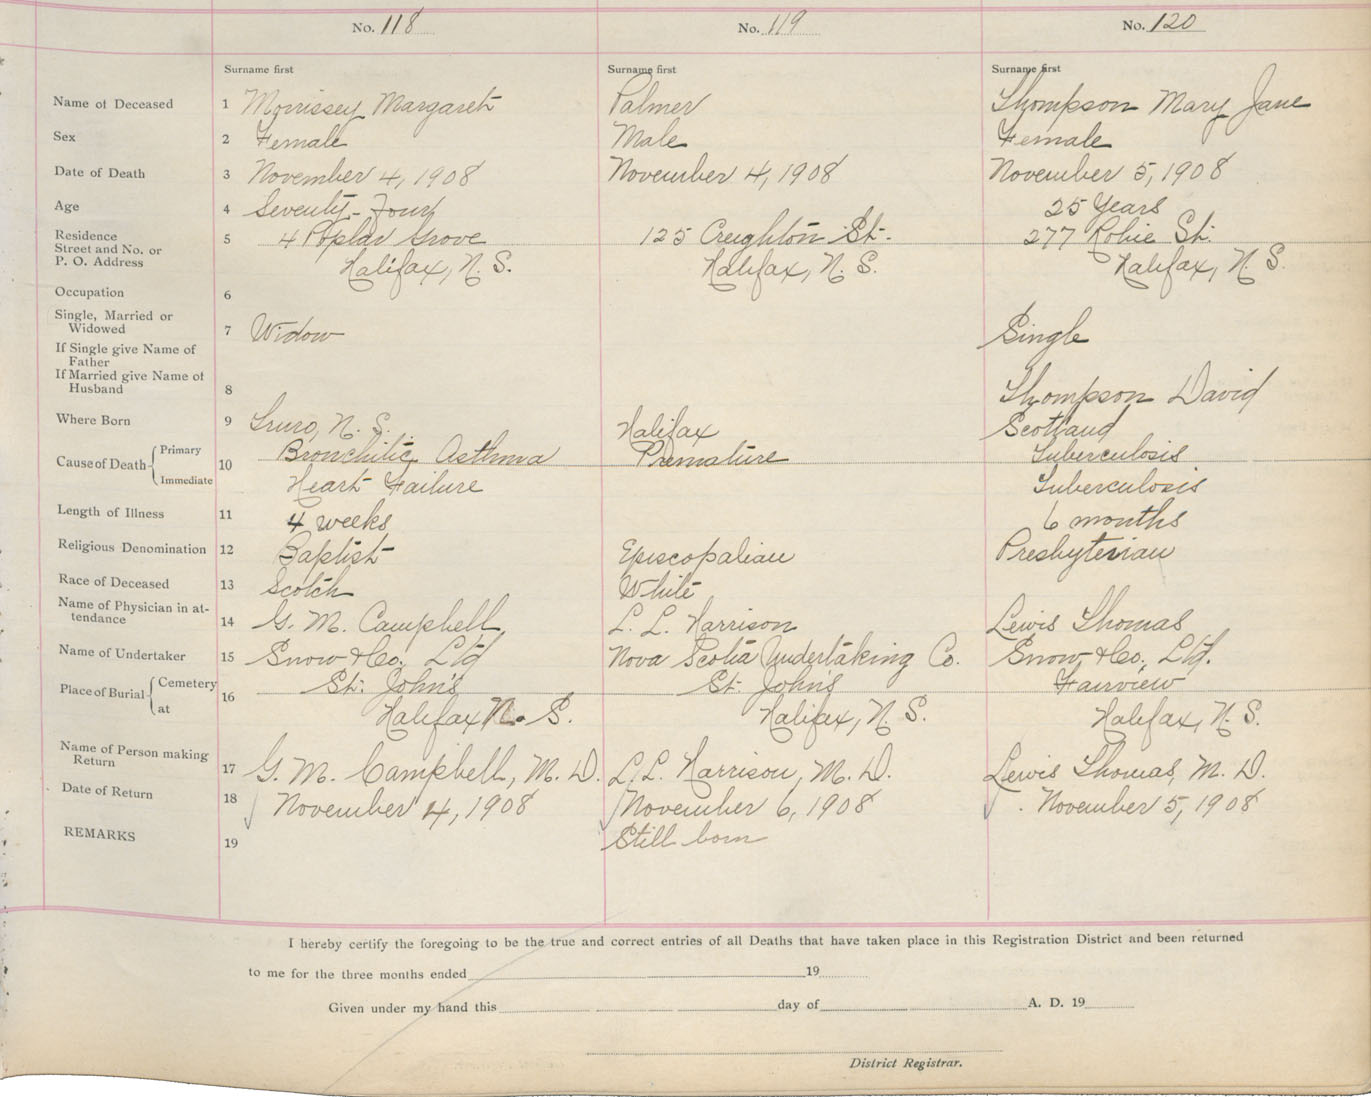 No. 118 No. 119 No. 120
Surname first Surname first Surname first
Name of Deceased 1 Morrissey Margaret Palmer Thompson Mary Jane
Sex 2 Female Male Female
Date of Death 3 November 4, 1908 November 4, 1908 November 5, 1908
Age 4 Seventy-Four 25 Years
Residence 5 4 Poplar Grove 125 Creighton St. 277 Robie St.
Street and No. or
P. O. Address Halifax, N. S. Halifax, N. S. Halifax, N. S.
Occupation 6
Single, Married or
Widowed 7 Widow Single
If Single give Name of
Father
If Married give Name of
Husband 8 Thompson David
Where Born 9 Truro, N. S. Halifax Scotland
Cause of Death Primary 10 Bronchitic Asthma Premature Tuberculosis
Immediate Heart Failure Tuberculosis
Length of Illness 11 4 weeks 6 months
Religious Denomination 12 Baptist Episcopalian Presbyterian
Race of Deceased 13 Scotch White
Name of Physician in at-
tendance 14 G. M. Campbell L. L. Harrison Lewis Thomas
Name of Undertaker 15 Snow & Co., Ltd Nova Scotia Undertaking Co. Snow & Co., Ltd.
Place of Burial Cemetery 16 St. John's St. John's Fairview
at Halifax N. S. Halifax, N. S. Halifax, N. S.
Name of Person making
Return 17 G. M. Campbell, M. D. L. L. Harrison, M. D. Lewis Thomas, M. D.
Date of Return 18 November 4, 1908 November 6, 1908 November 5, 1908
REMARKS 19 Still born
I hereby certify the foregoing to be the true and correct entries of all Deaths that have taken place in this Registration District and been returned
to me for the three months ended 19
Given under my hand this day of A. D. 19
District Registrar.